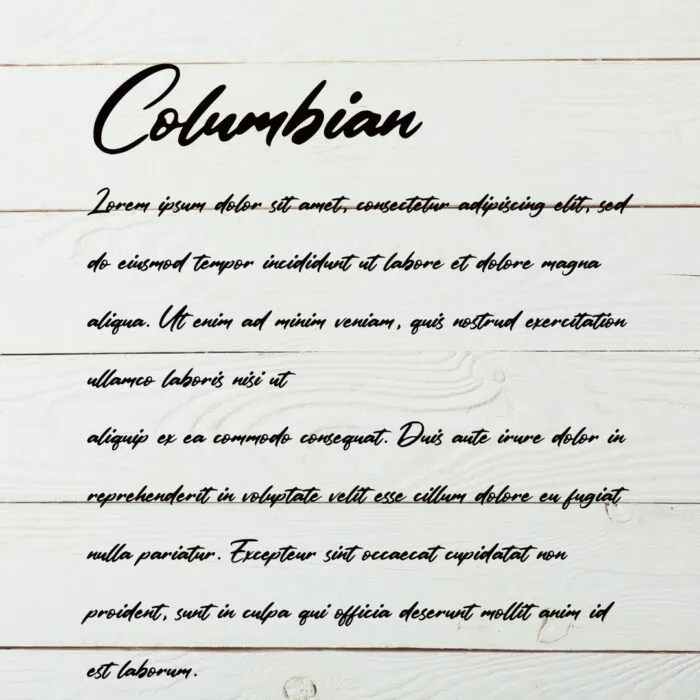 Columbian
Lorem ipsum dolor sit amet, consectetur adipiscing elit, sed
do eiusmod tempor incididunt ut labore et dolore magna
aliqua. Ut enim ad minim veniam, quis nostrud exercitation
ullamco laboris nisi ut
aliquip ex ea commodo consequat. Duis aute irure dolor in
reprehenderit in voluptate velit esse cillum dolore eu fugiat
nulla pariatur. Excepteur sint occaecat cupidatat non
proident, sunt in culpa qui officia deserunt mollit anim id
est laborum.